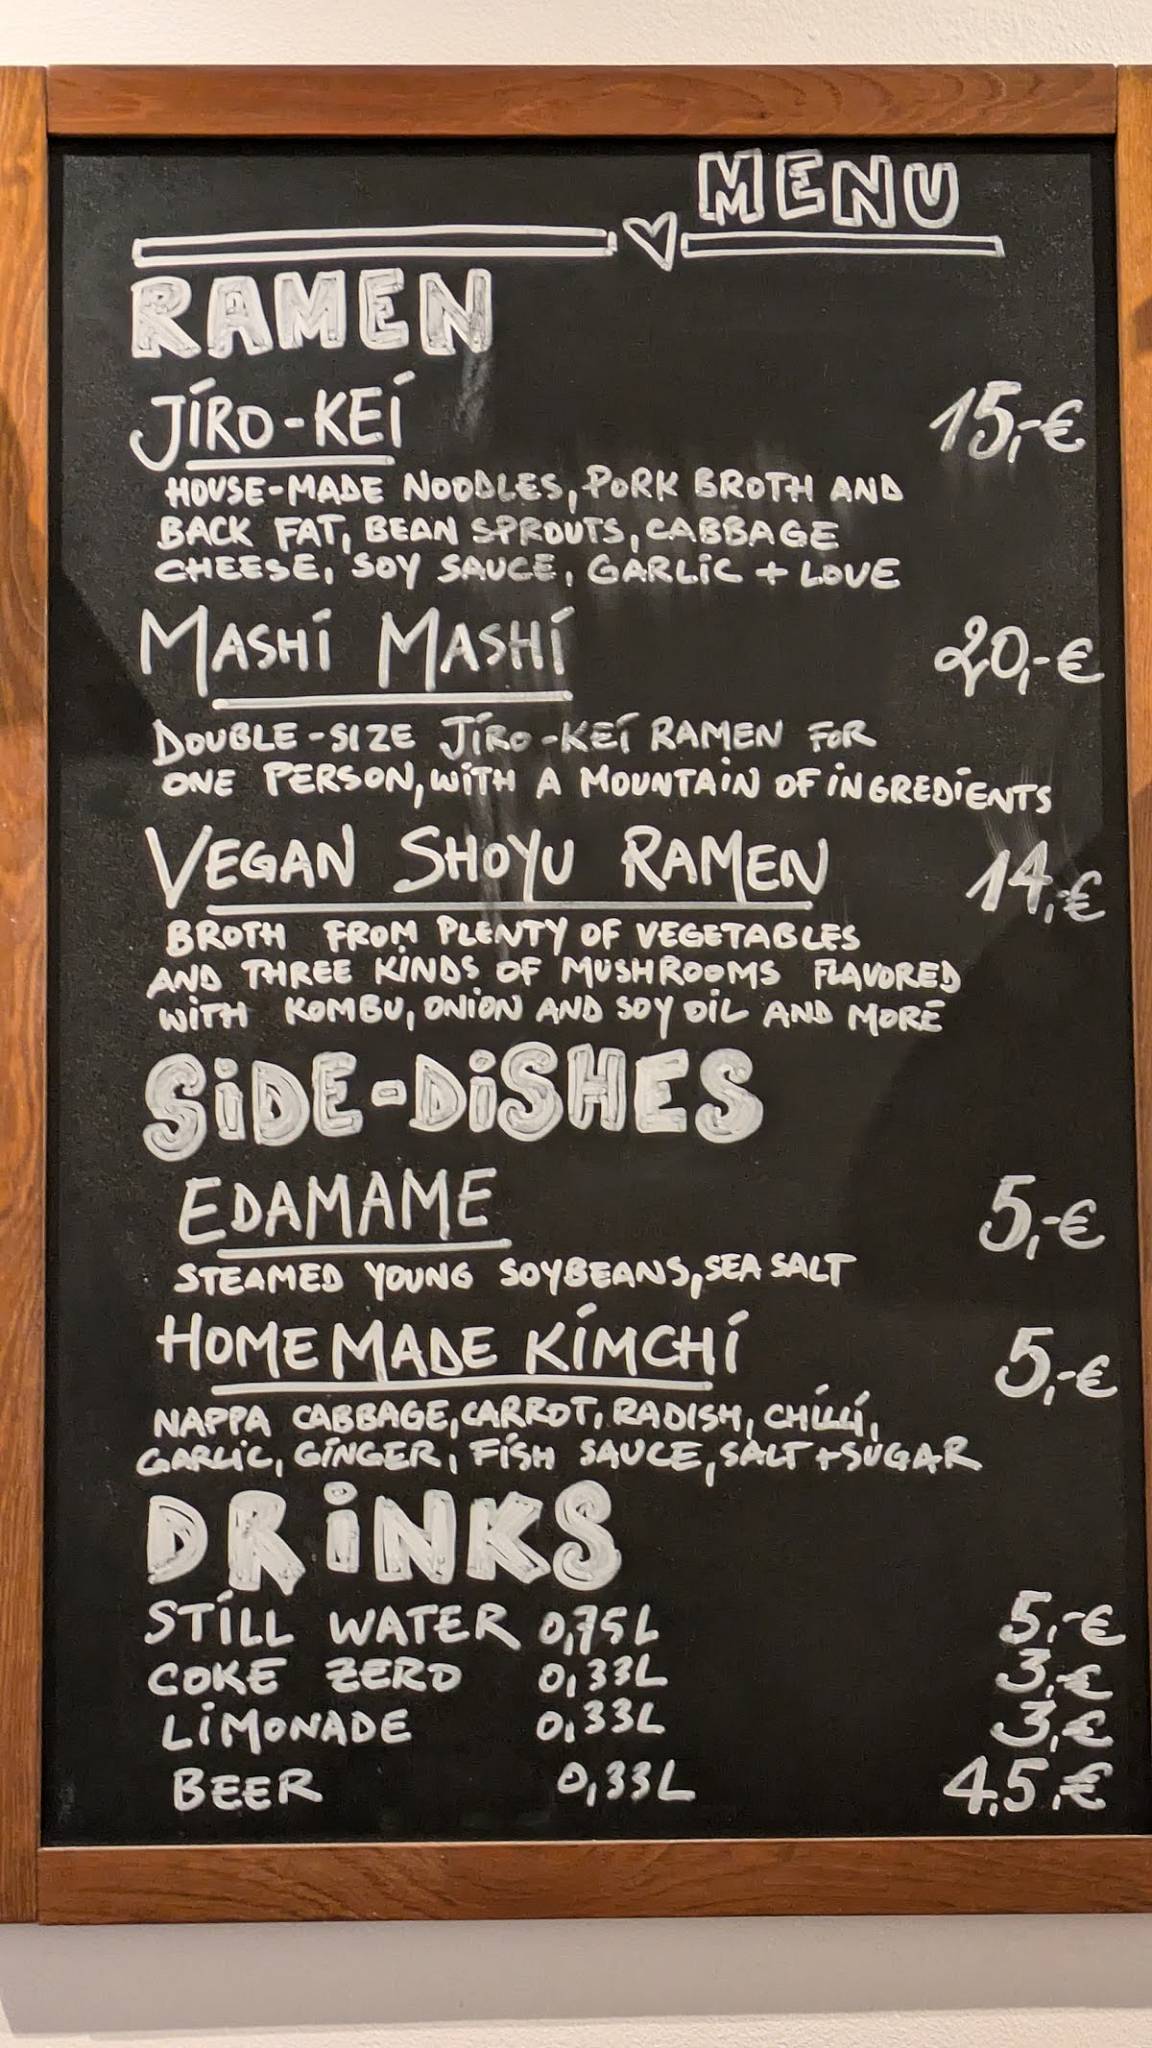 MENU
RAMEN
JÍRO-KEÍ 15,-€
HOUSE-MADE NOODLES, PORK BROTH AND
BACK FAT, BEAN SPROUTS, CABBAGE
CHEESE, SOY SAUCE, GARLIC + LOVE
MASHÍ MASHÍ 20,-€
DOUBLE-SIZE JÍRO-KEÍ RAMEN FOR
ONE PERSON, WITH A MOUNTAIN OF INGREDIENTS
VEGAN SHOYU RAMEN 14,-€
BROTH FROM PLENTY OF VEGETABLES
AND THREE KINDS OF MUSHROOMS FLAVORED
WITH KOMBU, ONION AND SOY OIL AND MORE
SIDE-DISHES
EDAMAME 5,-€
STEAMED YOUNG SOYBEANS, SEA SALT
HOMEMADE KÍMCHÍ 5,-€
NAPPA CABBAGE, CARROT, RADISH, CHÍLLÍ,
GARLIC, GINGER, FISH SAUCE, SALT + SUGAR
DRINKS
STILL WATER 0,75L 5,-€
COKE ZERO 0,33L 3,-€
LIMONADE 0,33L 3,-€
BEER 0,33L 4,5,-€